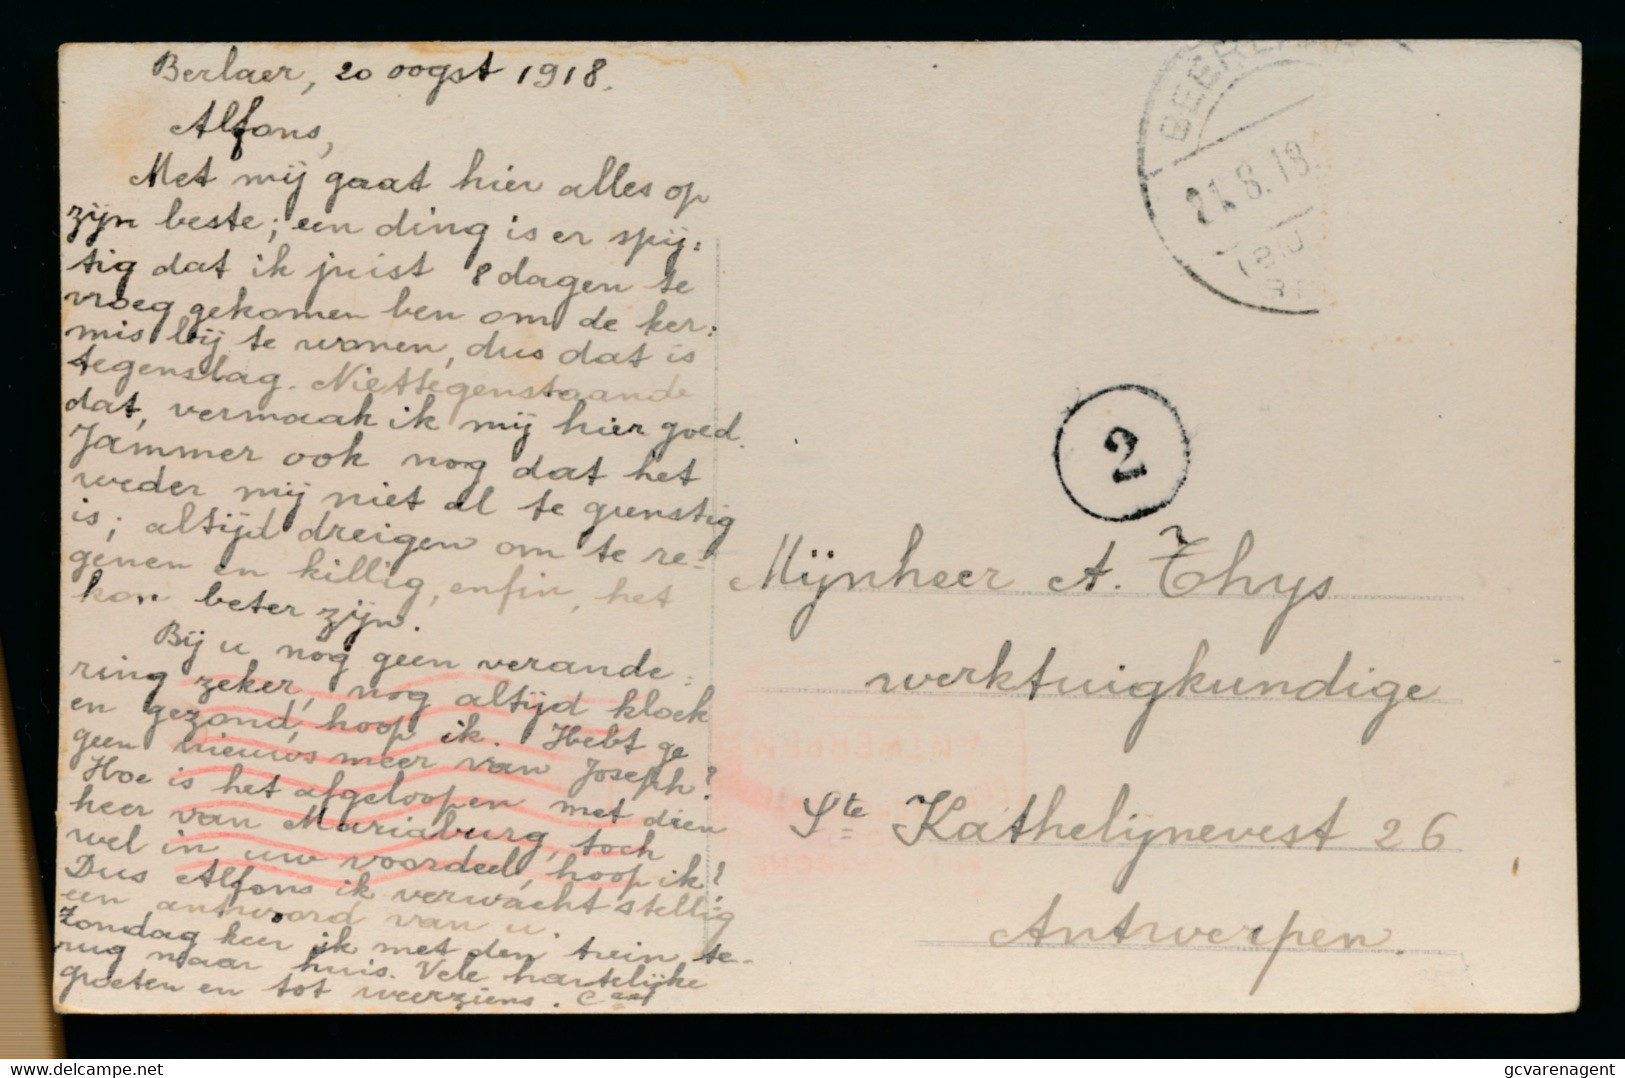 Berlaer, 20 oogst 1918.
Alfons,
Met mij gaat hier alles op
zijn beste; een ding is er spij:
tig dat ik juist 8 dagen te
vroeg gekomen ben om de ker:
mis bij te wonen, dus dat is
tegenslag. Niettegenstaande
dat, vermaak ik mij hier goed.
Jammer ook nog dat het
weder mij niet al te gunstig
is; altijd dreigen om te re=
genen en killig, enfin, het
kon beter zijn.
Bij u nog geen verande=
ring zeker, nog altijd kloek
en gezond, hoop ik. Hebt ge
geen nieuws meer van Joseph?
Hoe is het afgeloopen met dien
heer van Mariaburg, toch
wel in uw voordeel, hoop ik?
Dus Alfons ik verwacht stellig
een antwoord van u.
Zondag keer ik met den trein te-
rug naar huis. Vele hartelijke
groeten en tot weerziens.
BEERLAAR
21.8.18.
2
Mijnheer A. Thys
werktuigkundige
Ste Kathelijnevest 26
Antwerpen.
gcvarenagent